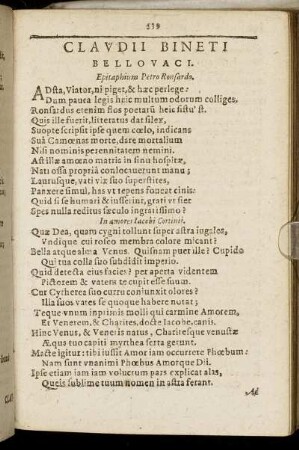 119
CLAVDII BINETI
BELLOVACI.
Epitaphium Petro Ronsardo.
ADsta, Viator, ni piget, & hæc perlege:
Dum pauca legis hîc multum odorum colliges.
Ronsardus etenim flos poetarũ heîc situ' st.
Quis ille fuerit, litteratus dat silex,
Suopte scripsit ipse quem cœlo, indicans
Suâ Camœnas morte, dare mortalium
Nisi nominis perennitatem nemini.
Ast illæ amœno matris in sinu hospitæ,
Nati ossa propriâ conlocuerunt manu;
Laurusque, vati viæ suo superstites,
Panxere simul, has vt tepens foueat cinis:
Quid si se humari & iussisset, grati vt siet
Spes nulla reditus sæculo ingratissimo?
In amores Iacobi Cortinij.
Quæ Dea, quam cygni tollunt super astra iugales,
Vndique cui roseo membra colore micant?
Bella atque alma Venus. Quisnam puer ille? Cupido
Qui tua colla suo subdidit imperio.
Quid detecta eius facies? per aperta videntem
Pictorem & vatem te cupit esse suum.
Cur Cytherea suo curru coniunxit olores?
Illa suos vates se quoque habere notat;
Teque vnum inprimis molli qui carmine Amorem,
Et Venerem, & Charites, docte Iacobe, canis.
Hinc Venus, & Veneris natus, Charitesque venustæ
Æqua tuo capiti myrthea serta getunt.
Macte igitur: tibi iussit Amor iam occurrere Phœbum:
Nam sunt vnanimi Phœbus Amorque Dii.
Ipse etiam iam iam volucrum pars explicat alas,
Queis sublime tuum nomen in astra ferant.
Ad